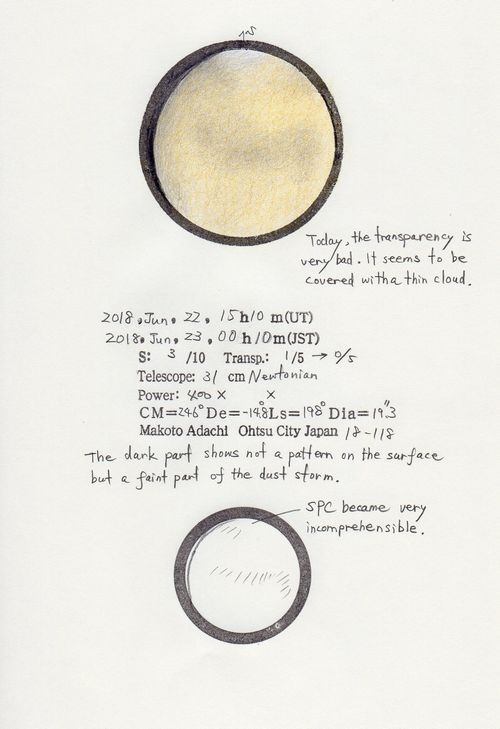 Today, the transparency is
very bad. It seems to be
covered with a thin cloud.
2018, Jun, 22, 15h10m(UT)
2018, Jun, 23, 00h10m(JST)
S: 3/10 Transp.: 1/5 → 0/5
Telescope: 31 cm Newtonian
Power: 400 × ×
CM=246° De=-14.8° Ls=198° Dia=19".3
Makoto Adachi Ohtsu City Japan 18-118
The dark part shows not a pattern on the surface
but a faint part of the dust storm.
SPC became very
incomprehensible.